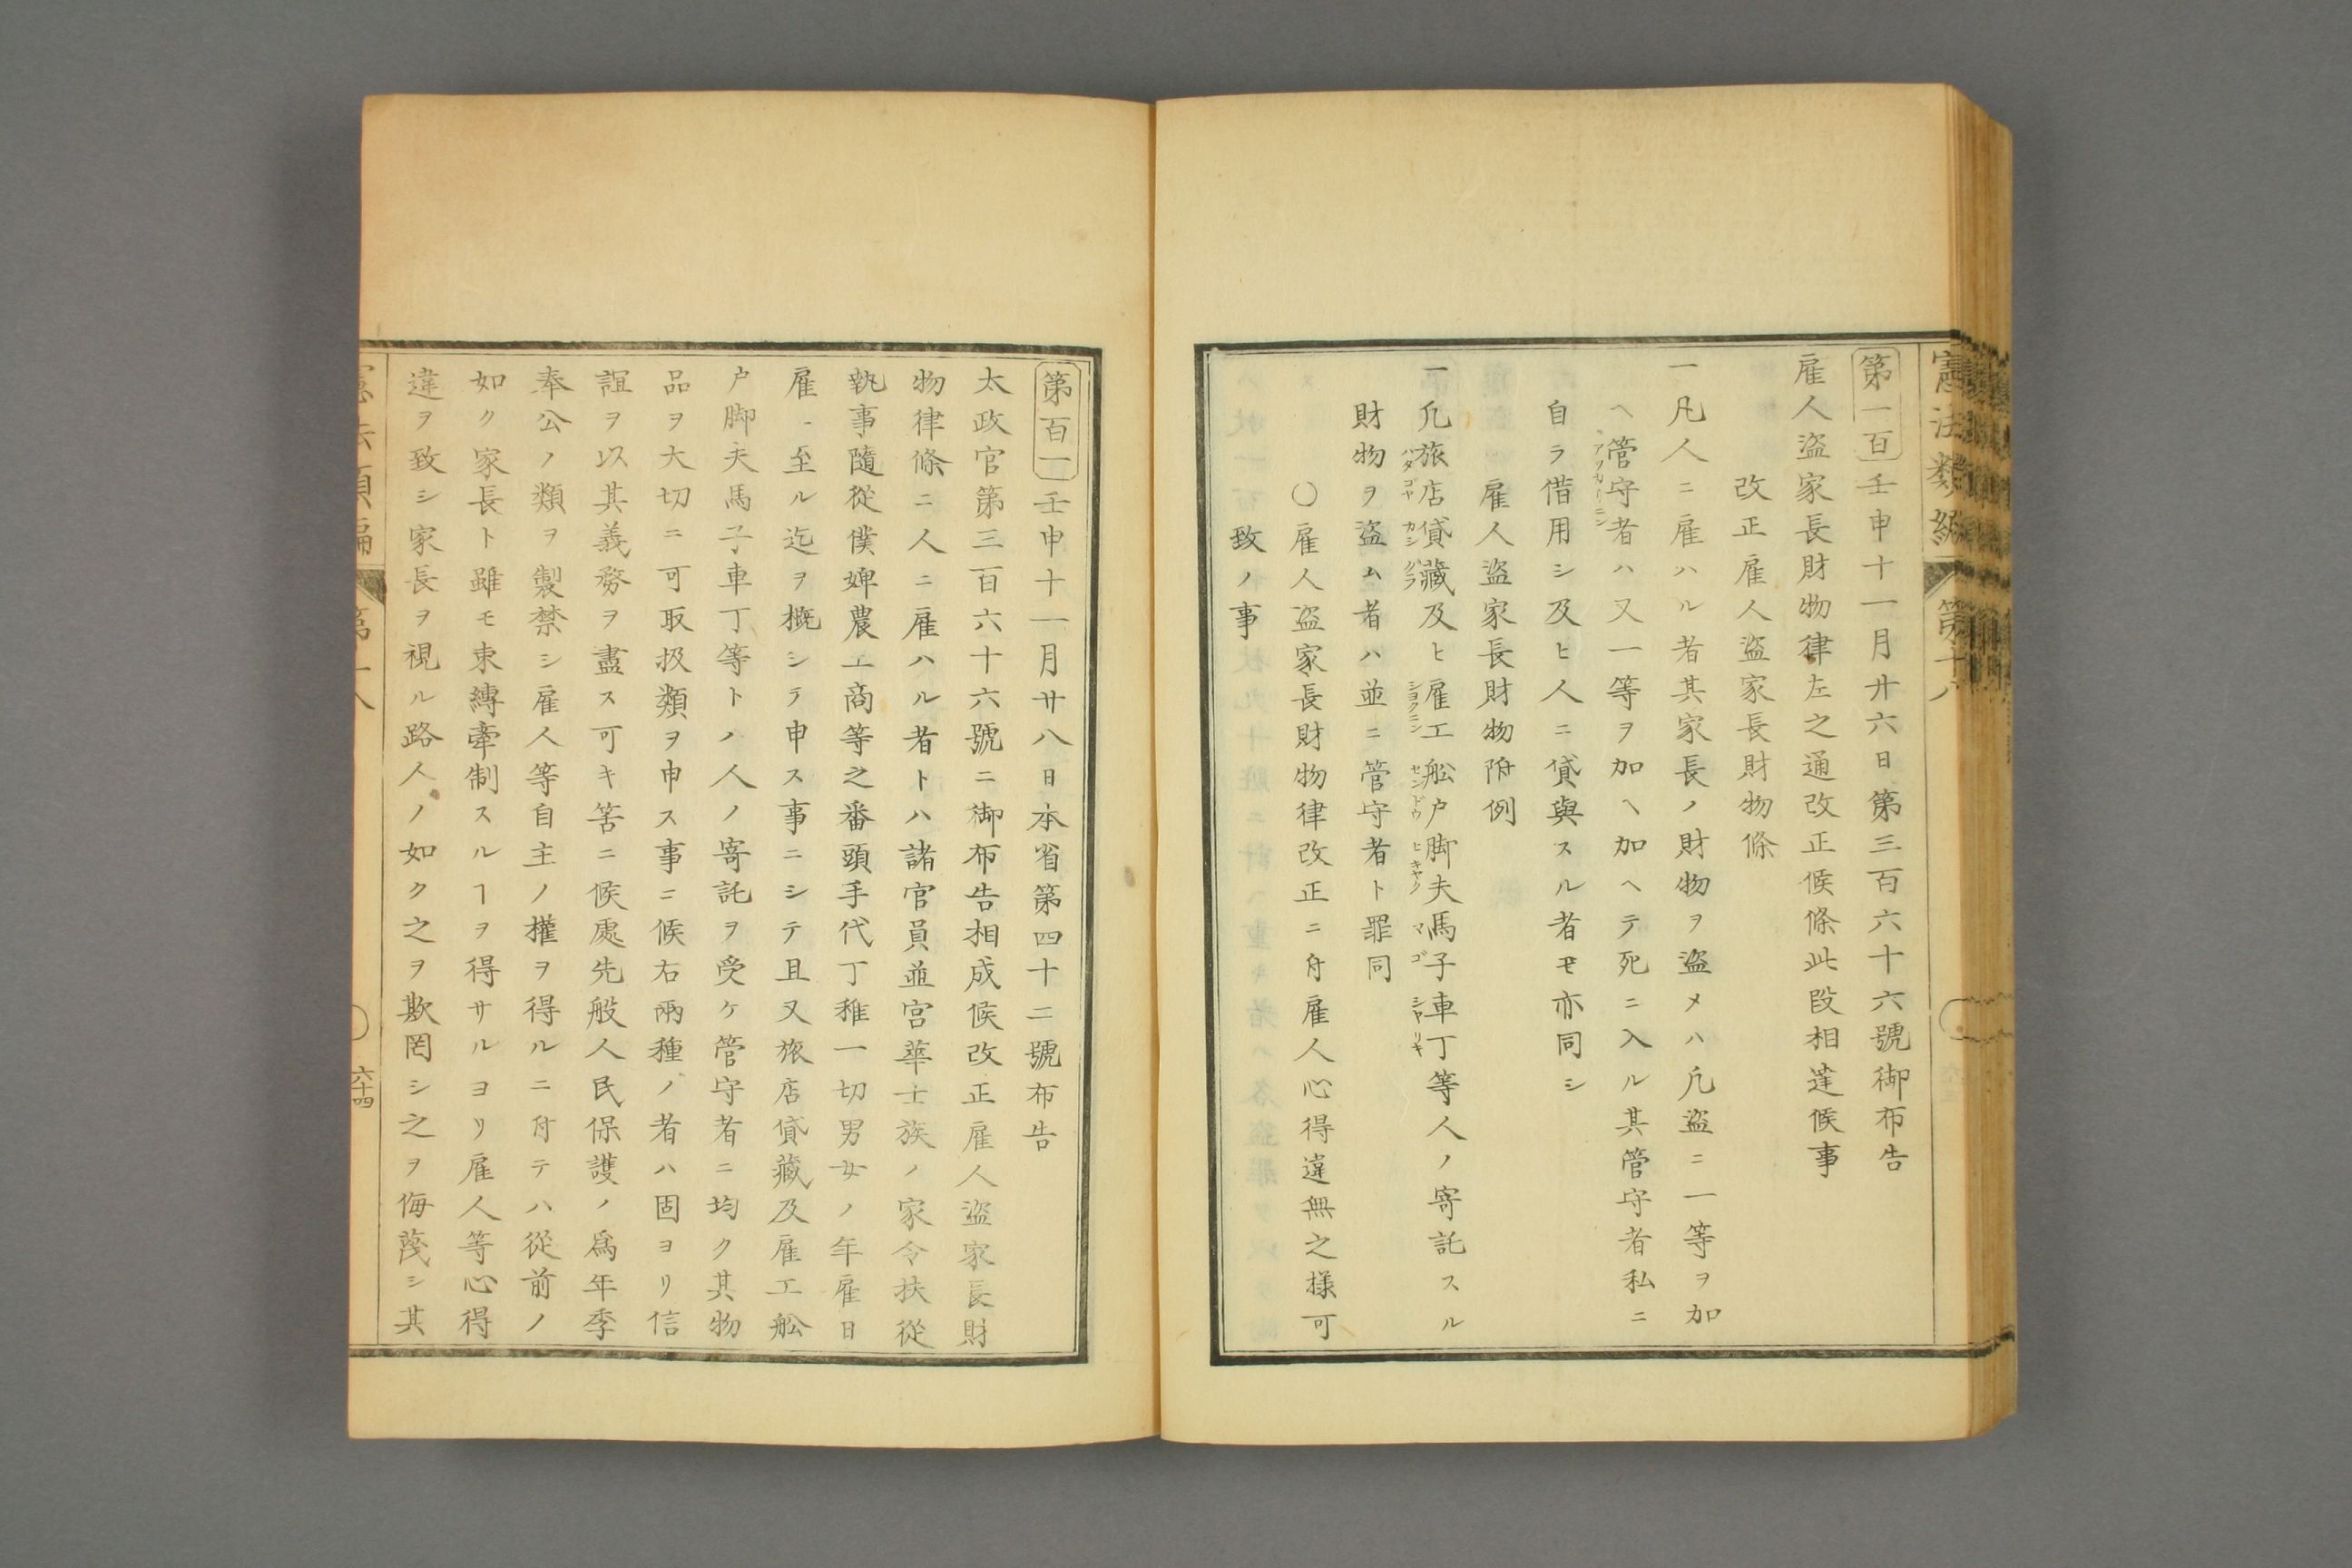 憲法類編 第十八
第一百 壬申十一月廿六日第三百六十六號御布告
雇人盜家長財物律左之通改正候條此段相達候事
改正雇人盜家長財物條
一凡人ニ雇ハル者其家長ノ財物ヲ盜メハ凡盜ニ一等ヲ加
ヘ管守者ハ又一等ヲ加ヘ加ヘテ死ニ入ル其管守者私ニ
アツカリニン
自ラ借用シ及ヒ人ニ貸與スル者モ亦同シ
雇人盜家長財物附例
一凡旅店貸藏及ヒ雇工舩戸脚夫馬子車丁等人ノ寄託スル
ハタゴヤ カシグラ ショクニン センドウ ヒキヤク マゴ シヤリキ
財物ヲ盜ム者ハ並ニ管守者ト罪同
○雇人盜家長財物律改正ニ付雇人心得違無之樣可
致ノ事
第百一 壬申十一月廿八日本省第四十二號布告
太政官第三百六十六號ニ御布告相成候改正雇人盜家長財
物律條ニ人ニ雇ハル者トハ諸官員並宮華士族ノ家令扶從
執事隨從僕婢農工商等之番頭手代丁稚一切男女ノ年雇日
雇ニ至ル迄ヲ概シテ申ス事ニシテ且又旅店貸藏及雇工舩
戸脚夫馬子車丁等トノ人ノ寄託ヲ受ケ管守者ニ均ク其物
品ヲ大切ニ可取扱類ヲ申ス事ニ候右兩種ノ者ハ固ヨリ信
誼ヲ以其義務ヲ盡ス可キ筈ニ候處先般人民保護ノ爲年季
奉公ノ類ヲ製禁シ雇人等自主ノ權ヲ得ルニ付テハ從前ノ
如ク家長ト雖モ束縛牽制スルヿヲ得サルヨリ雇人等心得
違ヲ致シ家長ヲ視ル路人ノ如ク之ヲ欺罔シ之ヲ侮蔑シ其
六十四